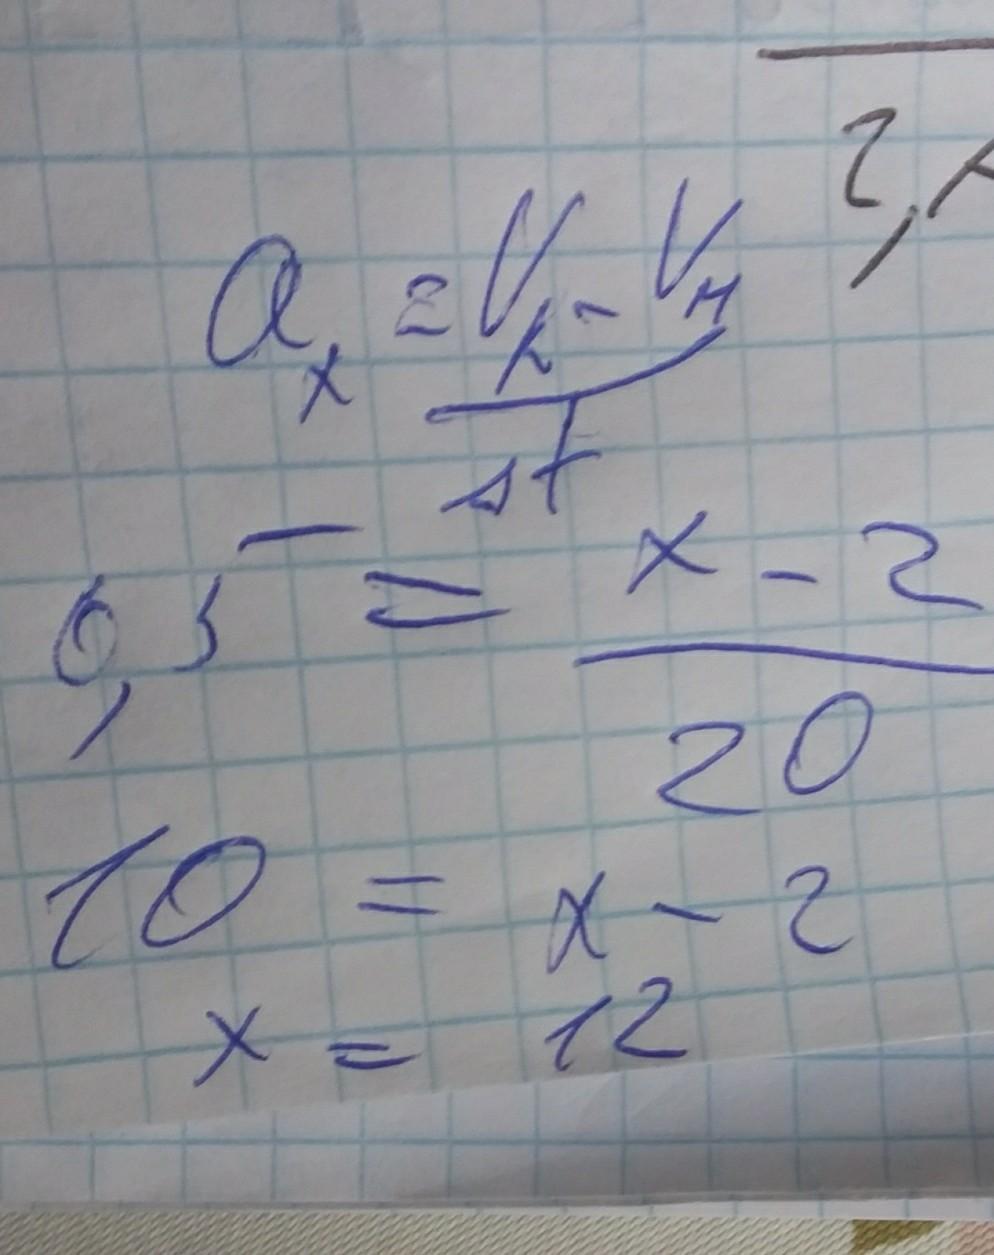 2,
aₓ = Vк - Vн / Δt
0,5 = x - 2 / 20
10 = x - 2
x = 12